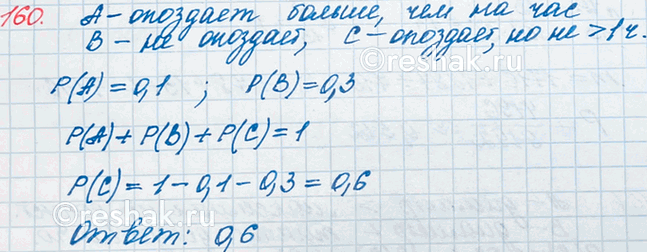 160. А – опоздает больше, чем на час
В – не опоздает, С – опоздает, но не > 1 ч.
P(A) = 0,1 ; P(B) = 0,3
P(A) + P(B) + P(C) = 1
P(C) = 1 – 0,1 – 0,3 = 0,6
Ответ: 0,6
©reshak.ru